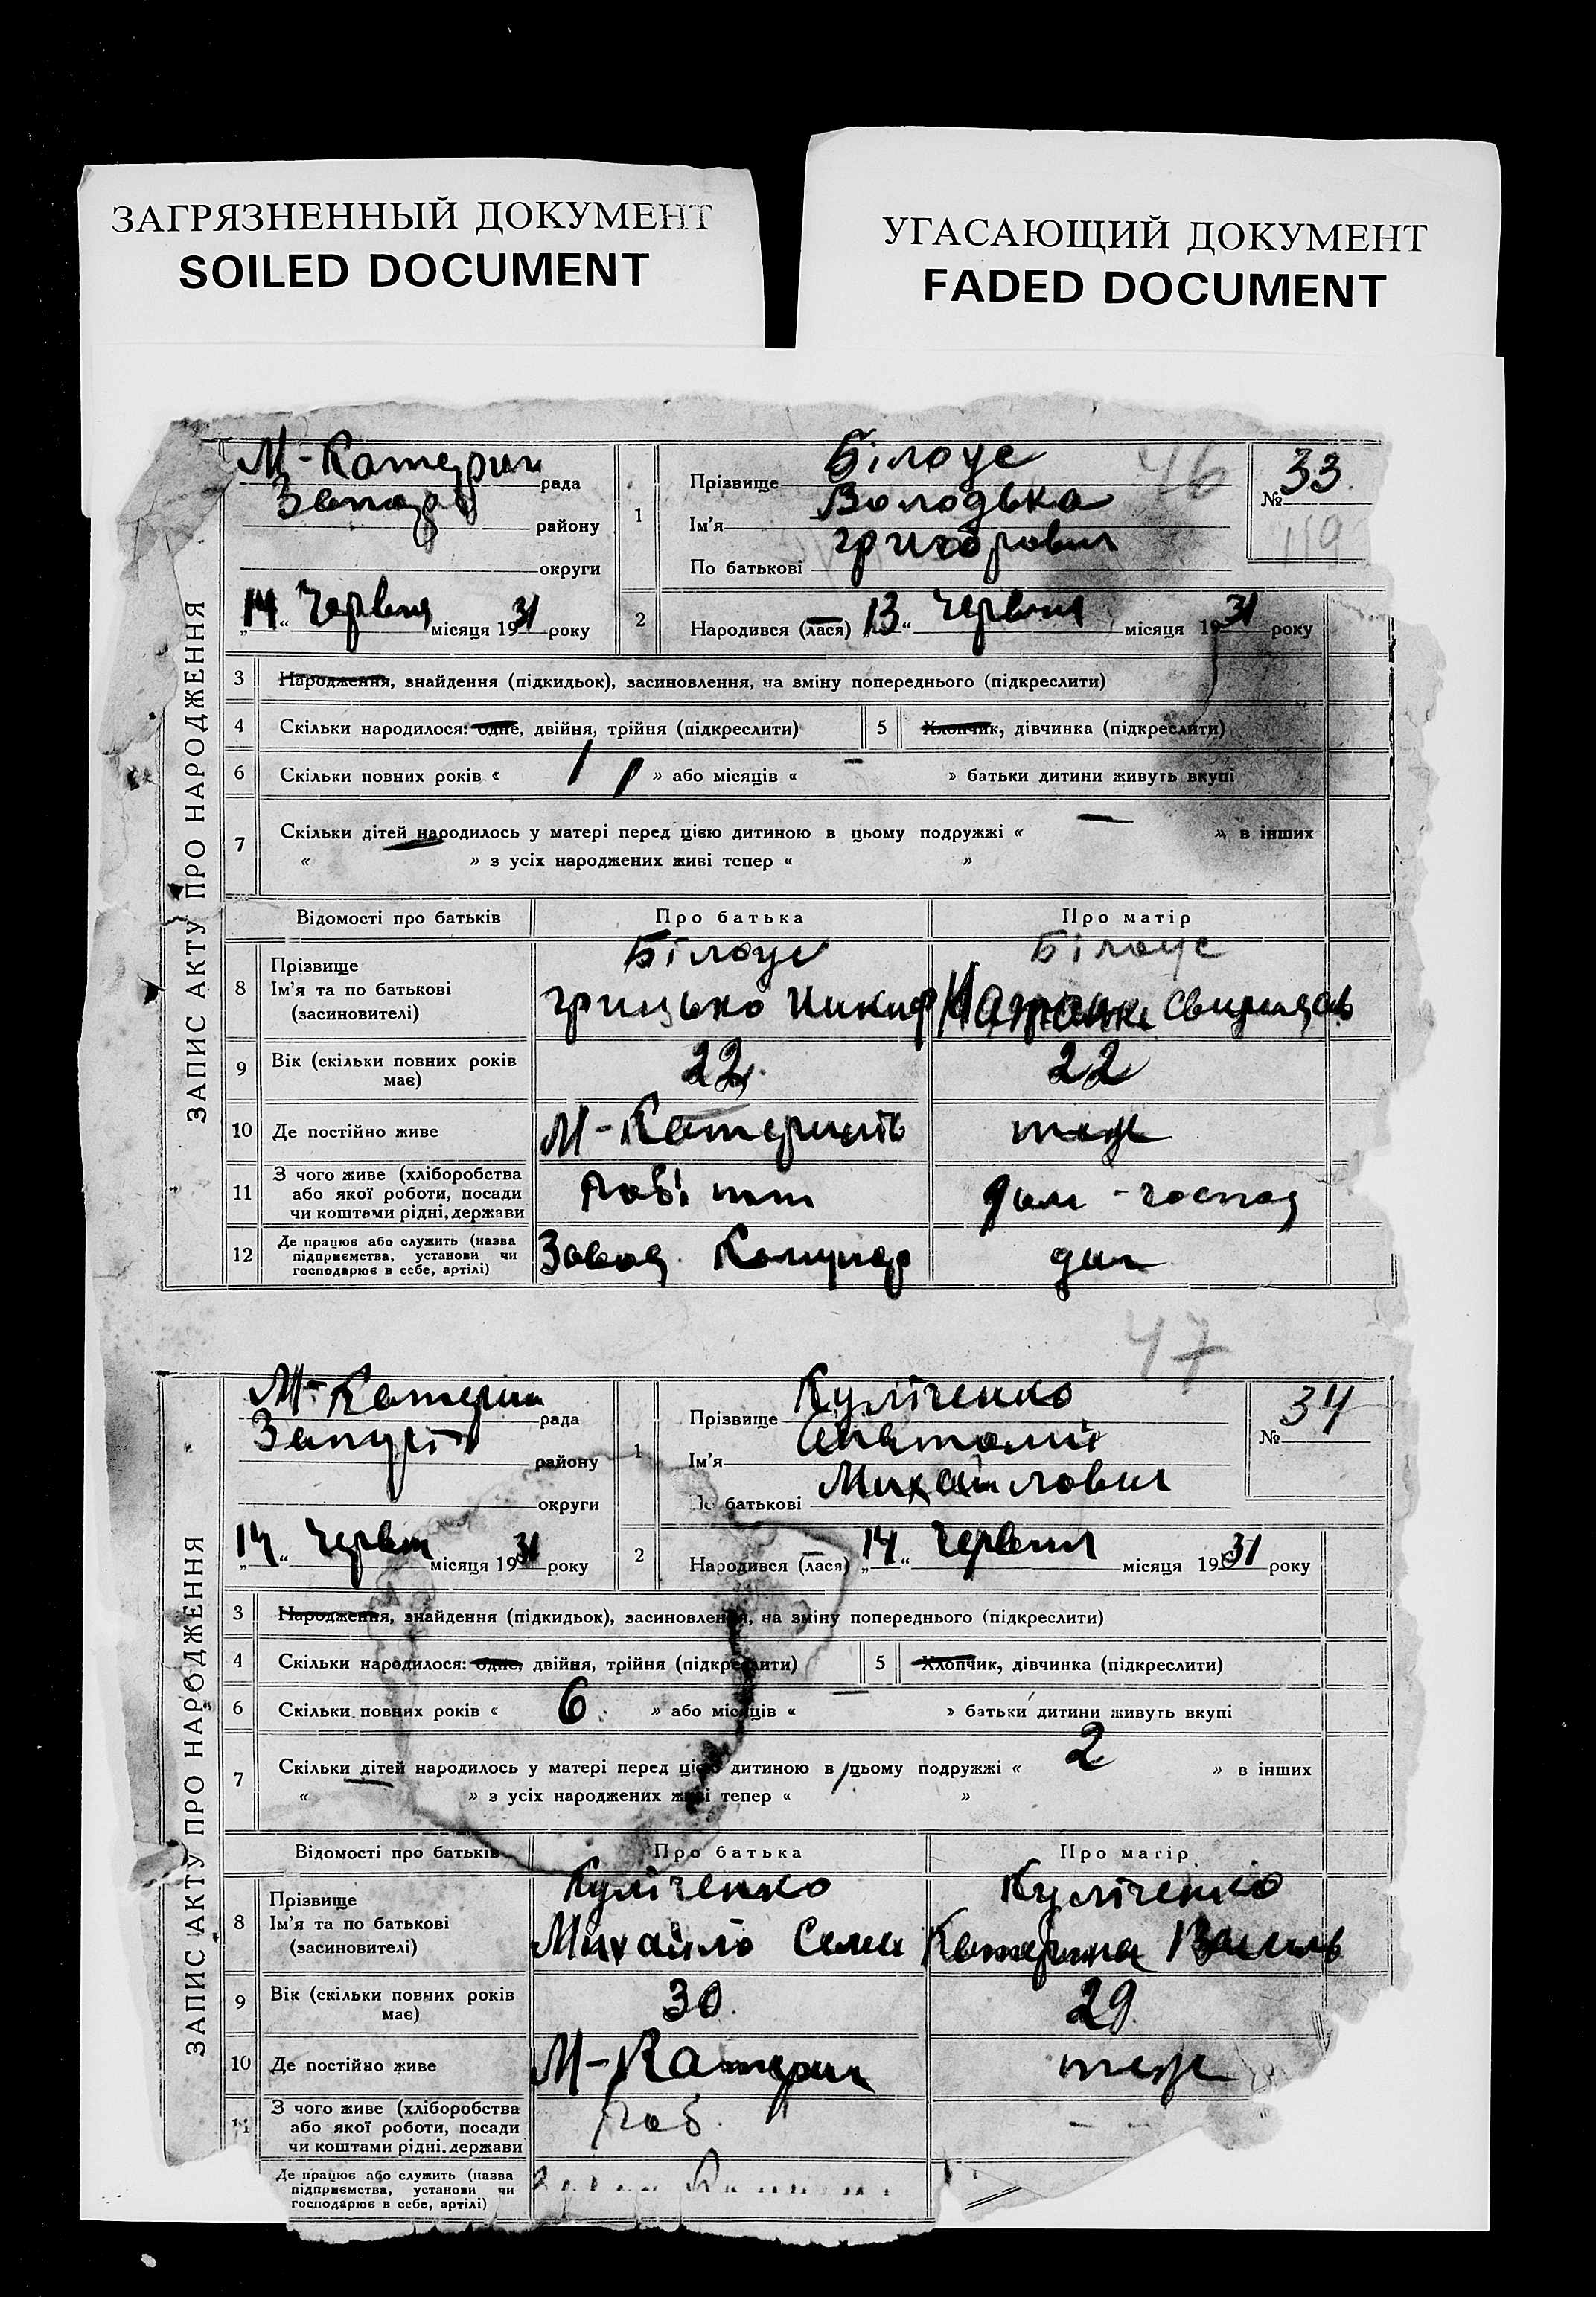 ЗАГРЯЗНЕННЫЙ ДОКУМЕНТ
SOILED DOCUMENT
УГАСАЮЩИЙ ДОКУМЕНТ
FADED DOCUMENT
ЗАПИС АКТУ ПРО НАРОДЖЕННЯ
М-Катерин рада
району
округи
„14“ Червня місяця 1931 року
1
Прізвище Білоус
Ім’я Володька
По батькові Григорович
46
№ 33
119
2 Народився (лася) 13“ Червня місяця 1931 року
3 Народження, знайдення (підкидьок), засиновлення, на зміну попереднього (підкреслити)
4 Скільки народилося: одне, двійня, трійня (підкреслити) 5 Хлопчик, дівчинка (підкреслити)
6 Скільки повних років « 1 » або місяців « – » батьки дитини живуть вкупі
7 Скільки дітей народилось у матері перед цією дитиною в цьому подружжі « – » в інших
« » з усіх народжених живі тепер « »
Відомості про батьків Про батька Про матір
8 Прізвище
Ім’я та по батькові
(засновителі)
Білоус Білоус
Грицько Никиф
9 Вік (скільки повних років має) 22 22
10 Де постійно живе М-Катеринів теж
11 З чого живе (хліборобства
або якої роботи, посади
чи коштами рідні, держави
Робітн Дом-господ
12 Де працює або служить (назва
підприємства, установи чи
господарює в себе, артілі)
Завод Комунар дом
47
ЗАПИС АКТУ ПРО НАРОДЖЕННЯ
М-Катерин рада
району
округи
„14“ Червня місяця 1931 року
1
Прізвище Куліченко
Ім’я Анатолий
По батькові Михайлович
№ 34
2 Народився (лася) „14“ Червня місяця 1931 року
3 Народження, знайдення (підкидьок), засиновлення, на зміну попереднього (підкреслити)
4 Скільки народилося: одне, двійня, трійня (підкреслити) 5 Хлопчик, дівчинка (підкреслити)
6 Скільки повних років « 6 » або місяців « – » батьки дитини живуть вкупі
7 Скільки дітей народилось у матері перед цією дитиною в цьому подружжі « 2 » в інших
« » з усіх народжених живі тепер « »
Відомості про батьків Про батька Про матір
8 Прізвище
Ім’я та по батькові
(засиновителі)
Куліченко Куліченко
Михайло Семен Катерина Василь
9 Вік (скільки повних років має) 30 29
10 Де постійно живе М-Катерин теж
11 З чого живе (хліборобства
або якої роботи, посади
чи коштами рідні, держави
Роб.
Де працює або служить (назва
підприємства, установи чи
господарює в себе, артілі)